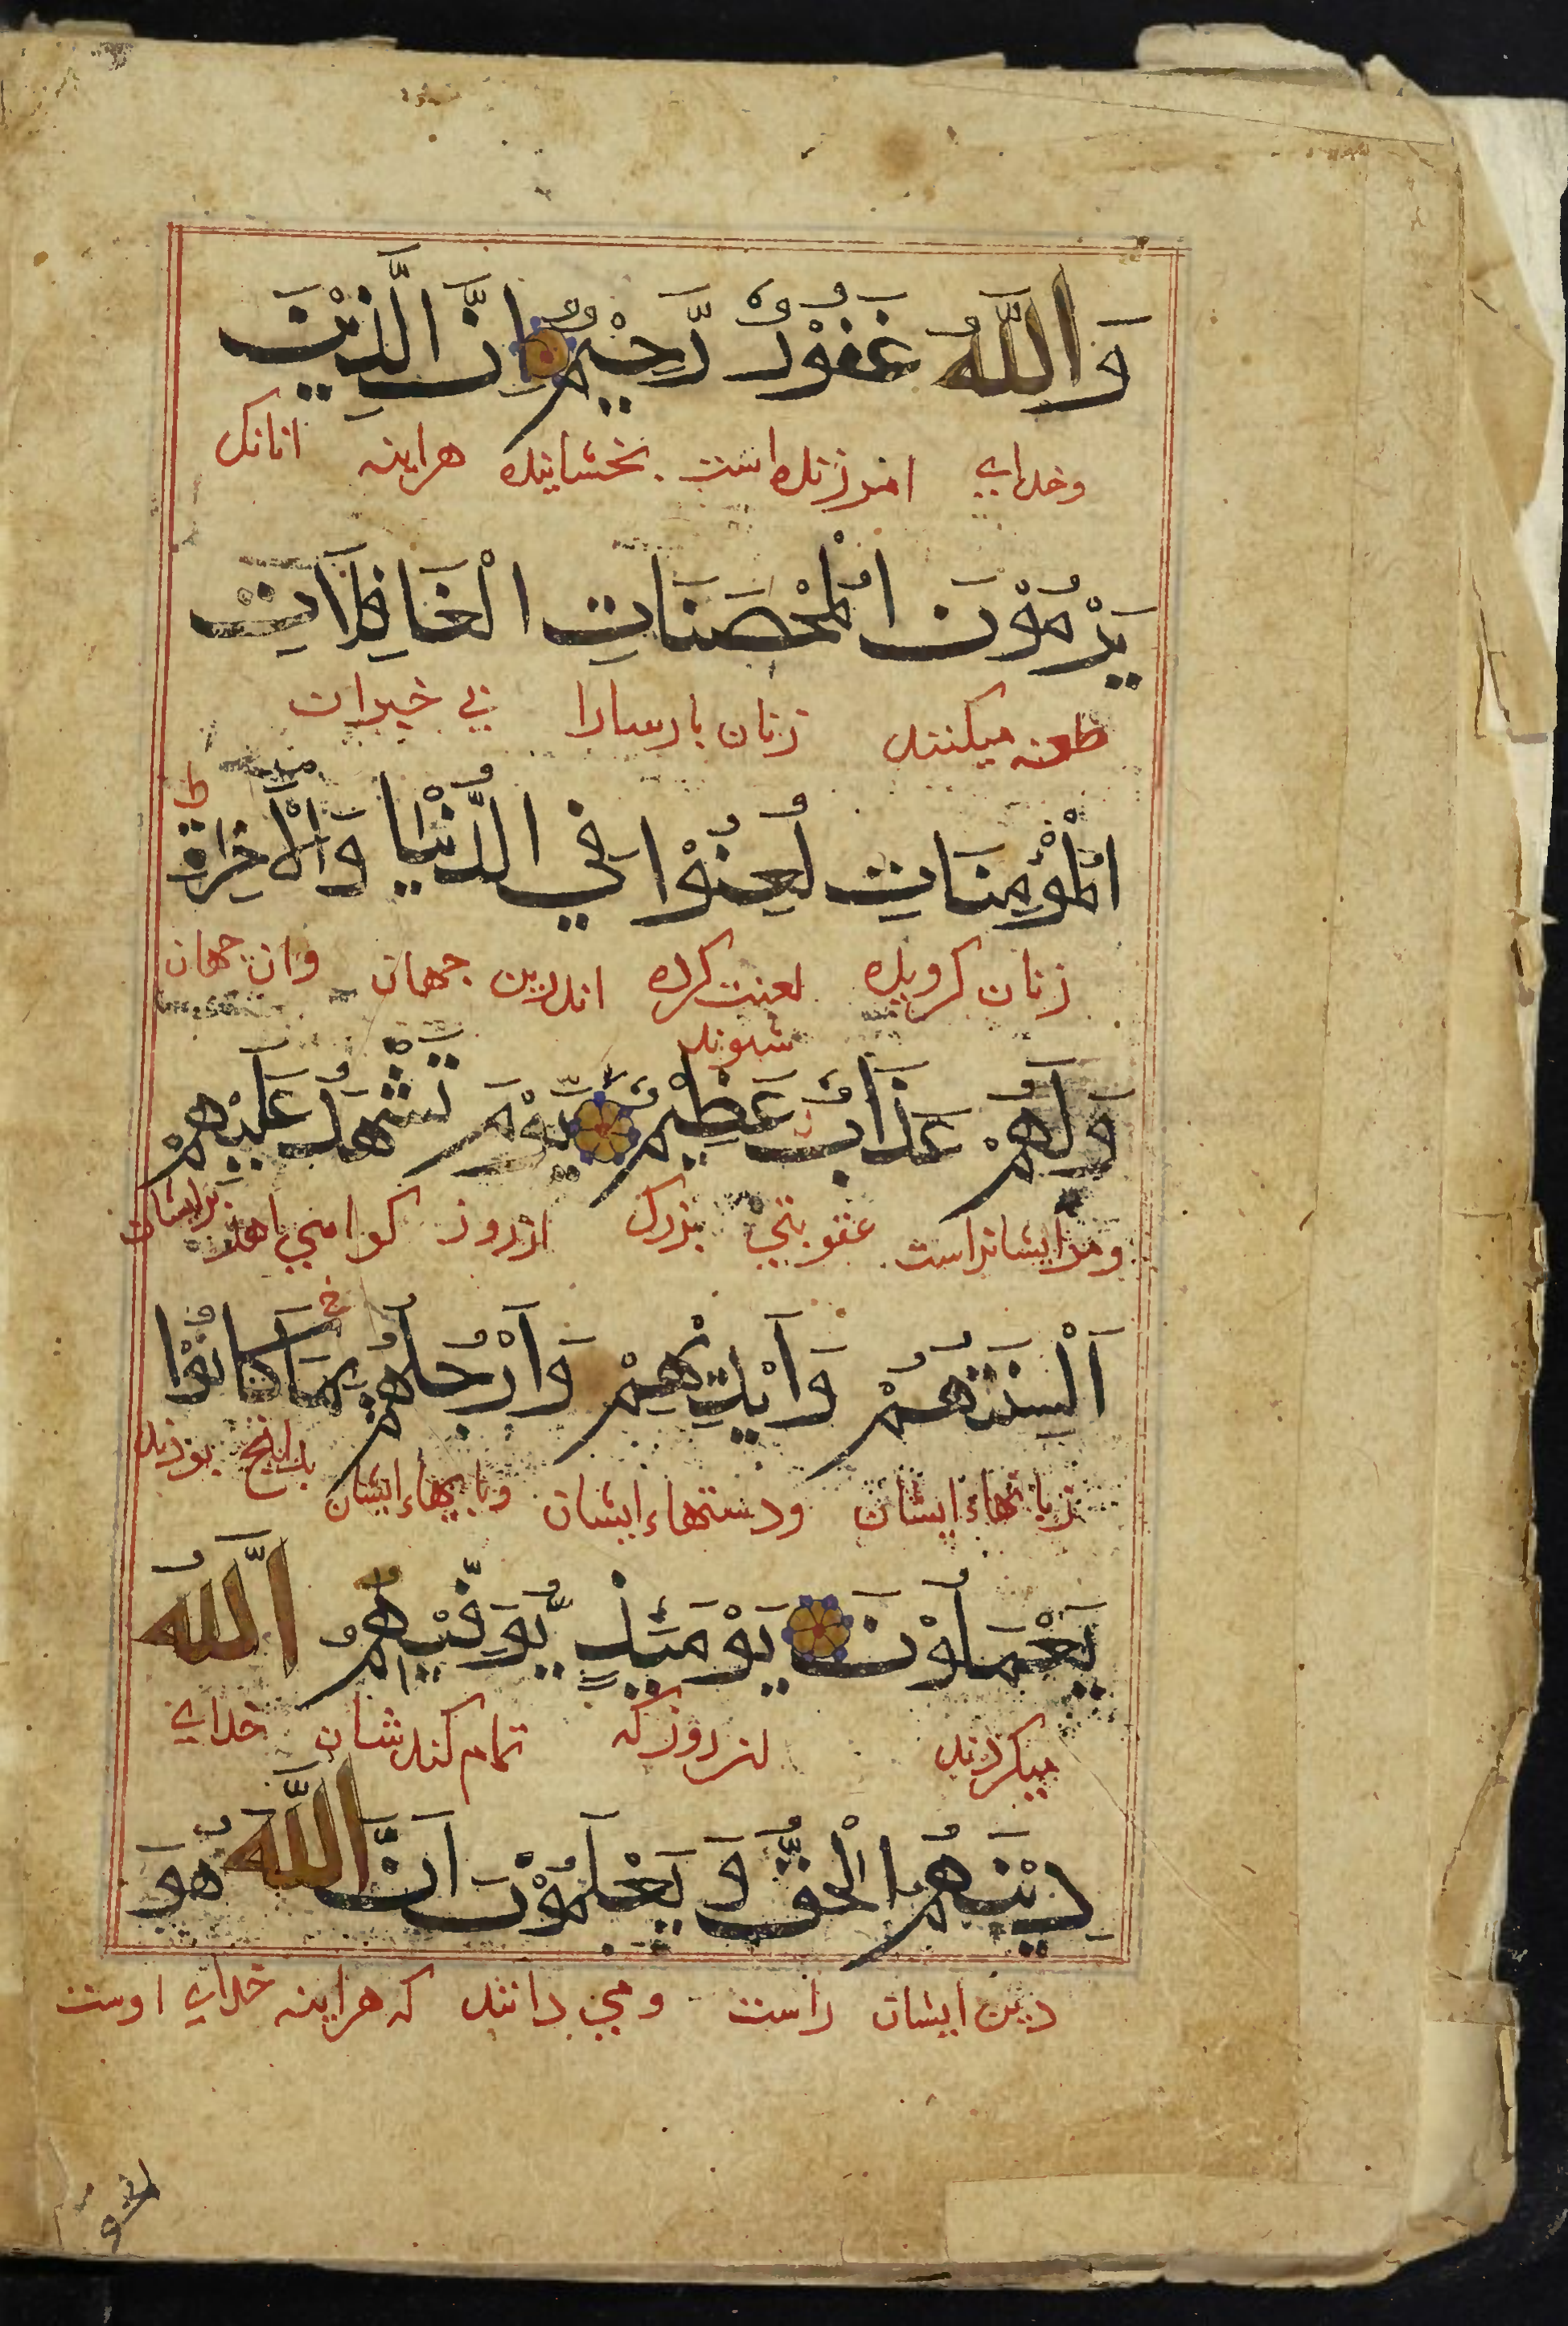 وَاللّٰهُ غَفُوْرٌ رَّحِيْمٌ اِنَّ الَّذِيْنَ
وخدای امرزنده است بخشاینده هراینه انانک
يَرْمُوْنَ الْمُحْصَنَاتِ الْغَافِلَاتِ
طعنه میکنند زنان پارسارا بی خبران
الْمُؤْمِنَاتِ لُعِنُوْا فِي الدُّنْيَا وَالْاٰخِرَةِ
ط
زنان کرویده لعنت کرده اندرین جهان وان جهان
شوند
وَلَهُمْ عَذَابٌ عَظِيْمٌ يَّوْمَ تَشْهَدُ عَلَيْهِمْ
ومرایشانراست عقوبتی بزرک انروز کواهی دهد برایشان
اَلْسِنَتُهُمْ وَاَيْدِيْهِمْ وَاَرْجُلُهُمْ بِمَا كَانُوْا
زبانهاء ایشان ودستهاء ایشان وپایهاء ایشان بدانچ بودند
يَعْمَلُوْنَ يَوْمَئِذٍ يُّوَفِّيْهِمُ اللّٰهُ
میکردند انروز که تمام کندشان خدای
دِيْنَهُمُ الْحَقَّ وَيَعْلَمُوْنَ اَنَّ اللّٰهَ هُوَ
دین ایشان راست ومی دانند که هراینه خدای اوست